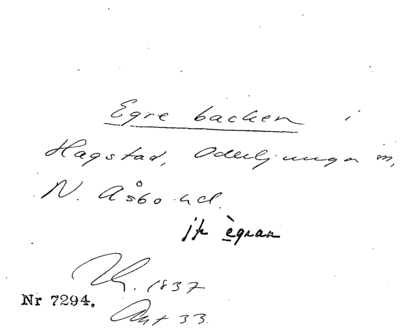 Egre backen i
Hagstad, Oderljunga sn,
N. Åsbo hd.
jfr ègran
1837
Nr 7294.
Akt 33.